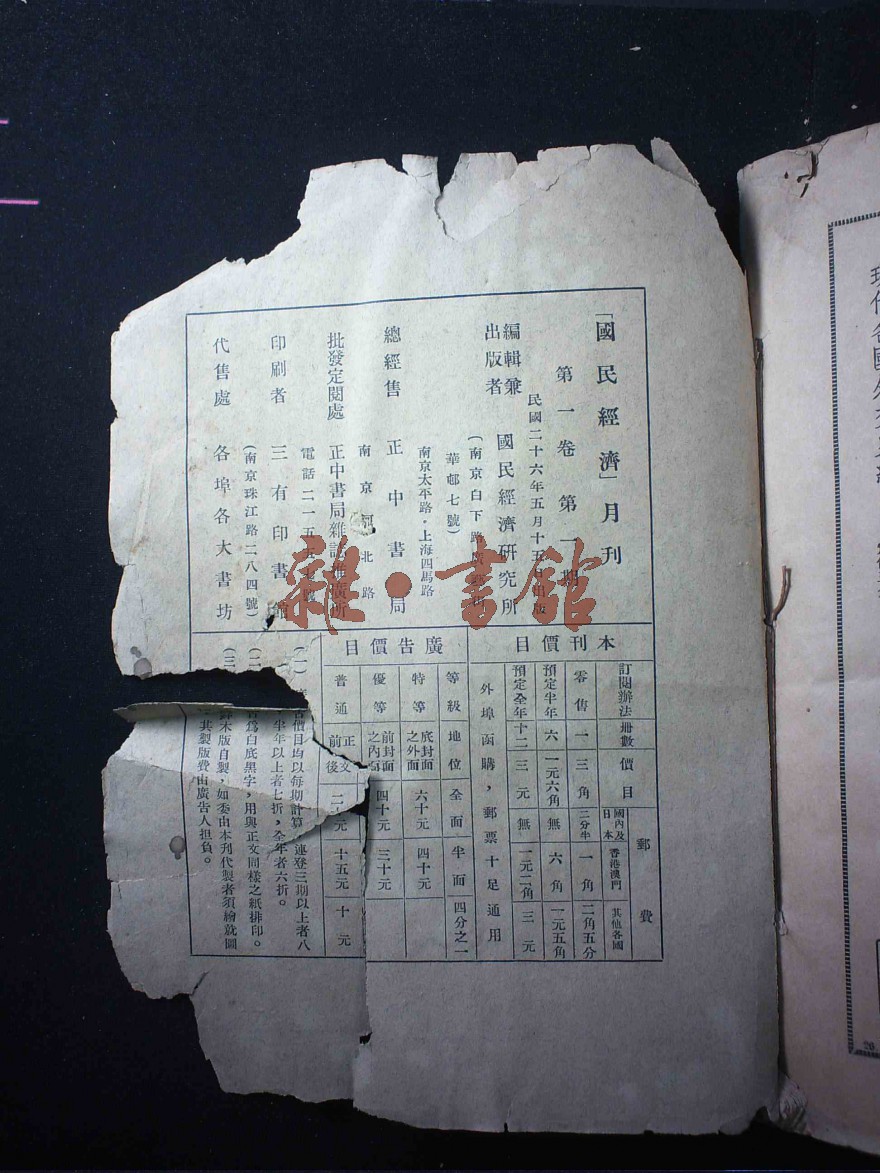 「國民經濟」月刊
第一卷 第一期
民國二十六年五月十五日出版
編輯兼出版者 國民經濟研究所
(南京白下路
華邨七號)
總經售 正中書局
南京太平路・上海四馬路
批發定閱處 正中書局雜誌推廣所
南京 北路
電話二一五
印刷者 三有印書館
(南京珠江路二八四號)
代售處 各埠各大書坊
本刊價目
訂閱辦法 冊數 價目 郵費
國內及日本 香港澳門 其他各國
零售 一 三角 二分半 一角 二角五分
預定半年 六 一元六角 無 六角 一元五角
預定全年 十二 三元 無 一元二角 三元
外埠函購,郵票十足通用
廣告價目
等級 地位 全面 半面 四分之一
特等 底封面之外面 六十元 四十元
優等 前封面之內面 四十元 三十元
普通 正文前後 二 元 十五元 十元
(一) 價目均以每期計算 連登三期以上者八
半年以上者七折,全年者六折。
(二) 為白底黑字,用與正文同樣之紙排印。
(三) 木版自製,如委由本刊代製者須繪就圖
其製版費由廣告人担負。
雜・書館
現代各國外交